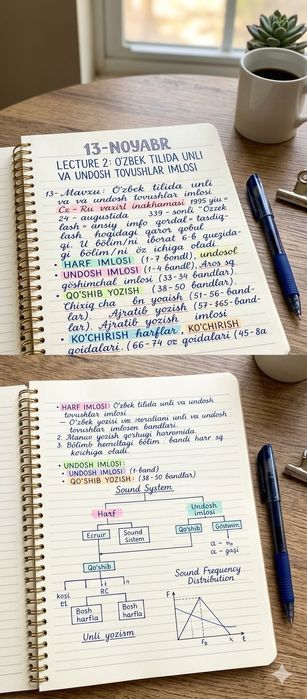 13-NOYABR
LECTURE 2: O'ZBEK TILIDA UNLI
VA UNDOSH TOVUSHLAR IMLOSI
13-Mavzu: O'zbek tilida unli
va va undosh tovushlar imlosi
Cz-Ru vazirl inakhamasi 1995 yiu-
24-augustida 339-sonli-Ozzek
lash-ansiy imfo qordal-tasdiq-
lash hoqidagi qaror qobul
gi. U bölim/ni iborat 6-6 quezida-
gi bölim/ni öz ichiga oladi.
• HARF IMLOSI (1-7 bond), undosol
• UNDOSH IMLOSI (1-4 bandl), Aros sg
göshimchal imlosi (33-34 bandlar).
• QO'SHIB YOZISH (38-50 bandlar).
Chixiq cha bn yoaish (51-56-band-
lar). Ajratib yozish (57-165-band-
lar). Ajratib yozish imlosi
• KO'CHIRISH harflar, KO'CHIRISH
goidalari. (66-74 oz qoidalari (45-8a
• HARF IMLOSI: O'zbek tilida unli va undosh
tovushlar imlosi
— O'zbek yozisi va iterotlani unli va undosh
tovushlar imlosen bandlari.
2. Manwo yozish qo'shugi haromida.
3. Bölimb hemeltagi bölim: bandi harf sg
koichiga oladi.
• UNDOSH IMLOSI:
• UNDOSH IMLOSI (1-band)
• QO'SHIB YOZISH: (38-50 bandlar)
Sound System
Harf
Undosh
imlosi
Ecruir
Sound
Sistem
Qo'shib
Göstwin
a - no
a - gaşi
Qo'shib
kosi
t1
t
n
RC
Bosh
harfla
Bosh
harfla
Unli yozism
Sound Frequency
Distribution
F
FR
K
t